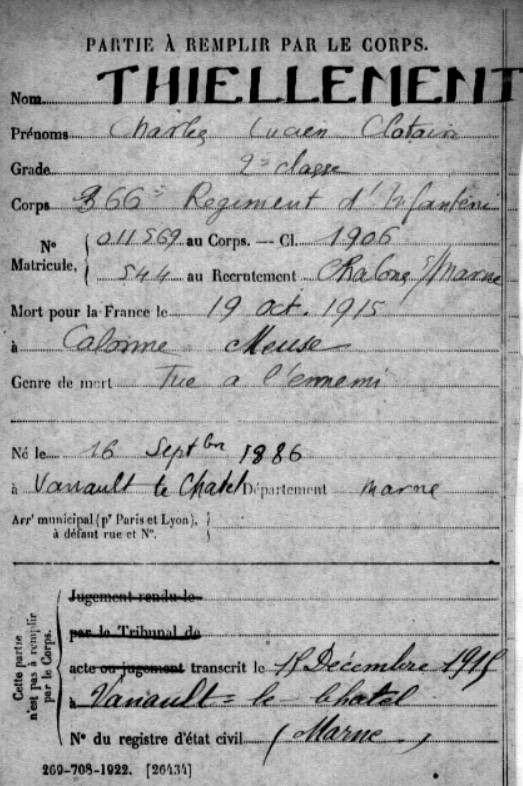 PARTIE À REMPLIR PAR LE CORPS.
Nom THIELLEMENT
Prénoms Charles Lucien Clotaire
Grade 2e classe
Corps 366e Regiment d'Infanterie
N° Matricule, 011569 au Corps. — Cl. 1906
544 au Recrutement Chalons s/Marne
Mort pour la France le 19 oct. 1915
à Calonne Meuse
Genre de mort Tué a l'ennemi
Né le 16 Septbre 1886
à Vanault le Chatel Département Marne
Arrt municipal (pr Paris et Lyon),
à défaut rue et N°.
Cette partie n'est pas à remplir par le Corps.
Jugement rendu le
par le Tribunal de
acte ou jugement transcrit le 15 Décembre 1915
à Vanault = le Chatel
N° du registre d'état civil (Marne)
260-708-1922. [26434]